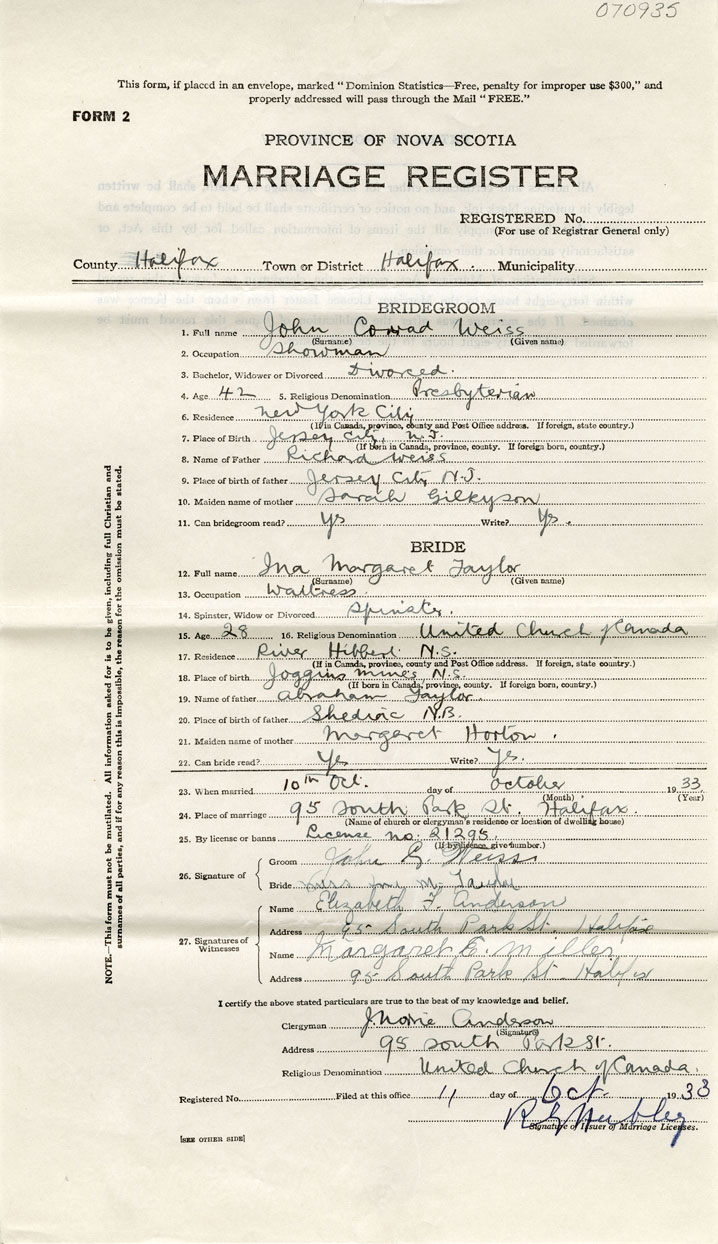 070935
This form, if placed in an envelope, marked "Dominion Statistics—Free, penalty for improper use $300," and
properly addressed will pass through the Mail "FREE."
FORM 2
PROVINCE OF NOVA SCOTIA
MARRIAGE REGISTER
REGISTERED No.
(For use of Registrar General only)
County Halifax Town or District Halifax. Municipality
BRIDEGROOM
1. Full name John Conrad Weiss
(Surname) (Given name)
2. Occupation Showman
3. Bachelor, Widower or Divorced Divorced.
4. Age 42 5. Religious Denomination Presbyterian
6. Residence New York City
(If in Canada, province, county and Post Office address. If foreign, state country.)
7. Place of Birth Jersey City, N.J.
(If born in Canada, province, county. If foreign born, country.)
8. Name of Father Richard Weiss
9. Place of birth of father Jersey City N.J.
10. Maiden name of mother Sarah Gilkyson
11. Can bridegroom read? Yes Write? Yes.
BRIDE
12. Full name Ina Margaret Taylor
(Surname) (Given name)
13. Occupation Waitress
14. Spinster, Widow or Divorced Spinster.
15. Age 28 16. Religious Denomination United Church of Canada
17. Residence River Hibbert N.S.
(If in Canada, province, county and Post Office address. If foreign, state country.)
18. Place of birth Joggins Mines N.S.
(If born in Canada, province, county. If foreign born, country.)
19. Name of father Abraham Taylor
20. Place of birth of father Shediac N.B.
21. Maiden name of mother Margaret Horton.
22. Can bride read? Yes Write? Yes.
23. When married 10th Oct. day of October 1933
(Month) (Year)
24. Place of marriage 95 South Park St. Halifax.
(Name of church or clergyman's residence or location of dwelling house)
25. By license or banns License no. 21295.
(If by licence, give number.)
26. Signature of
Groom John C. Weiss
Bride Miss Ina M. Taylor
27. Signatures of Witnesses
Name Elizabeth F. Anderson
Address 95 South Park St. Halifax
Name Margaret E. Miller
Address 95 South Park St Halifax
I certify the above stated particulars are true to the best of my knowledge and belief.
Clergyman Anderson
(Signature)
Address 95 South Park St.
Religious Denomination United Church of Canada.
Registered No. Filed at this office 11 day of Oct. 1933
Signature of Issuer of Marriage Licenses.
[SEE OTHER SIDE]
NOTE.—This form must not be mutilated. All information asked for is to be given, including full Christian and
surnames of all parties, and if for any reason this is impossible, the reason for the omission must be stated.